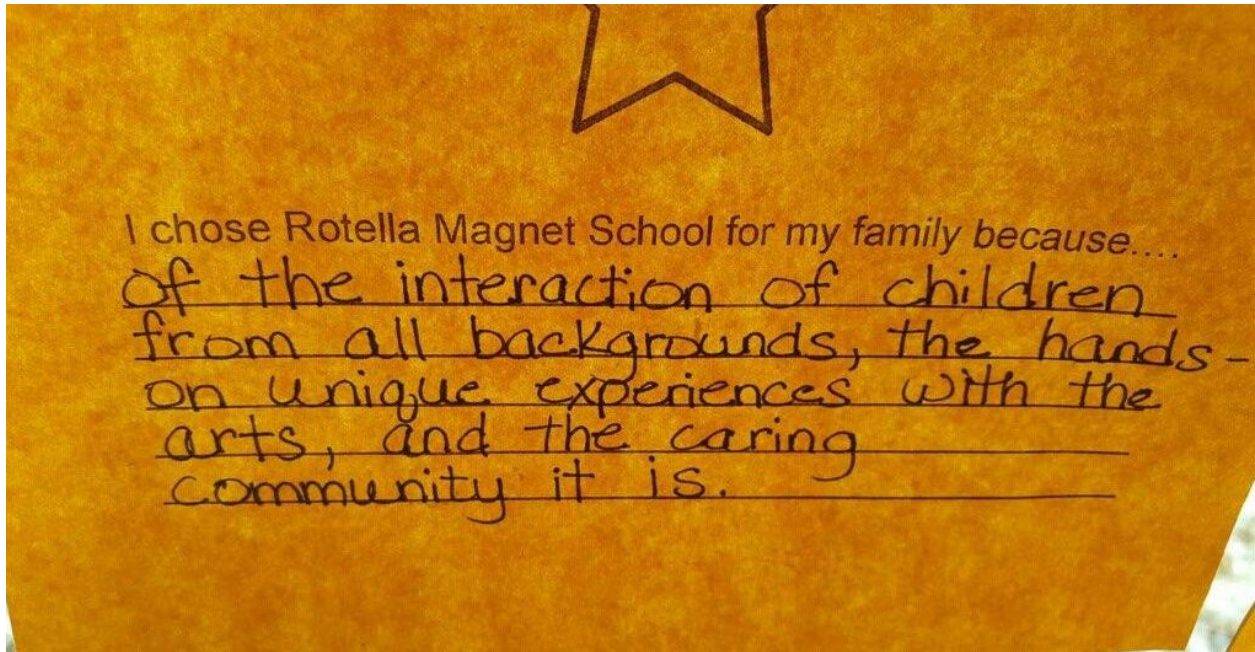 I chose Rotella Magnet School for my family because....
of the interaction of children
from all backgrounds, the hands-
on unique experiences with the
arts, and the caring
community it is.